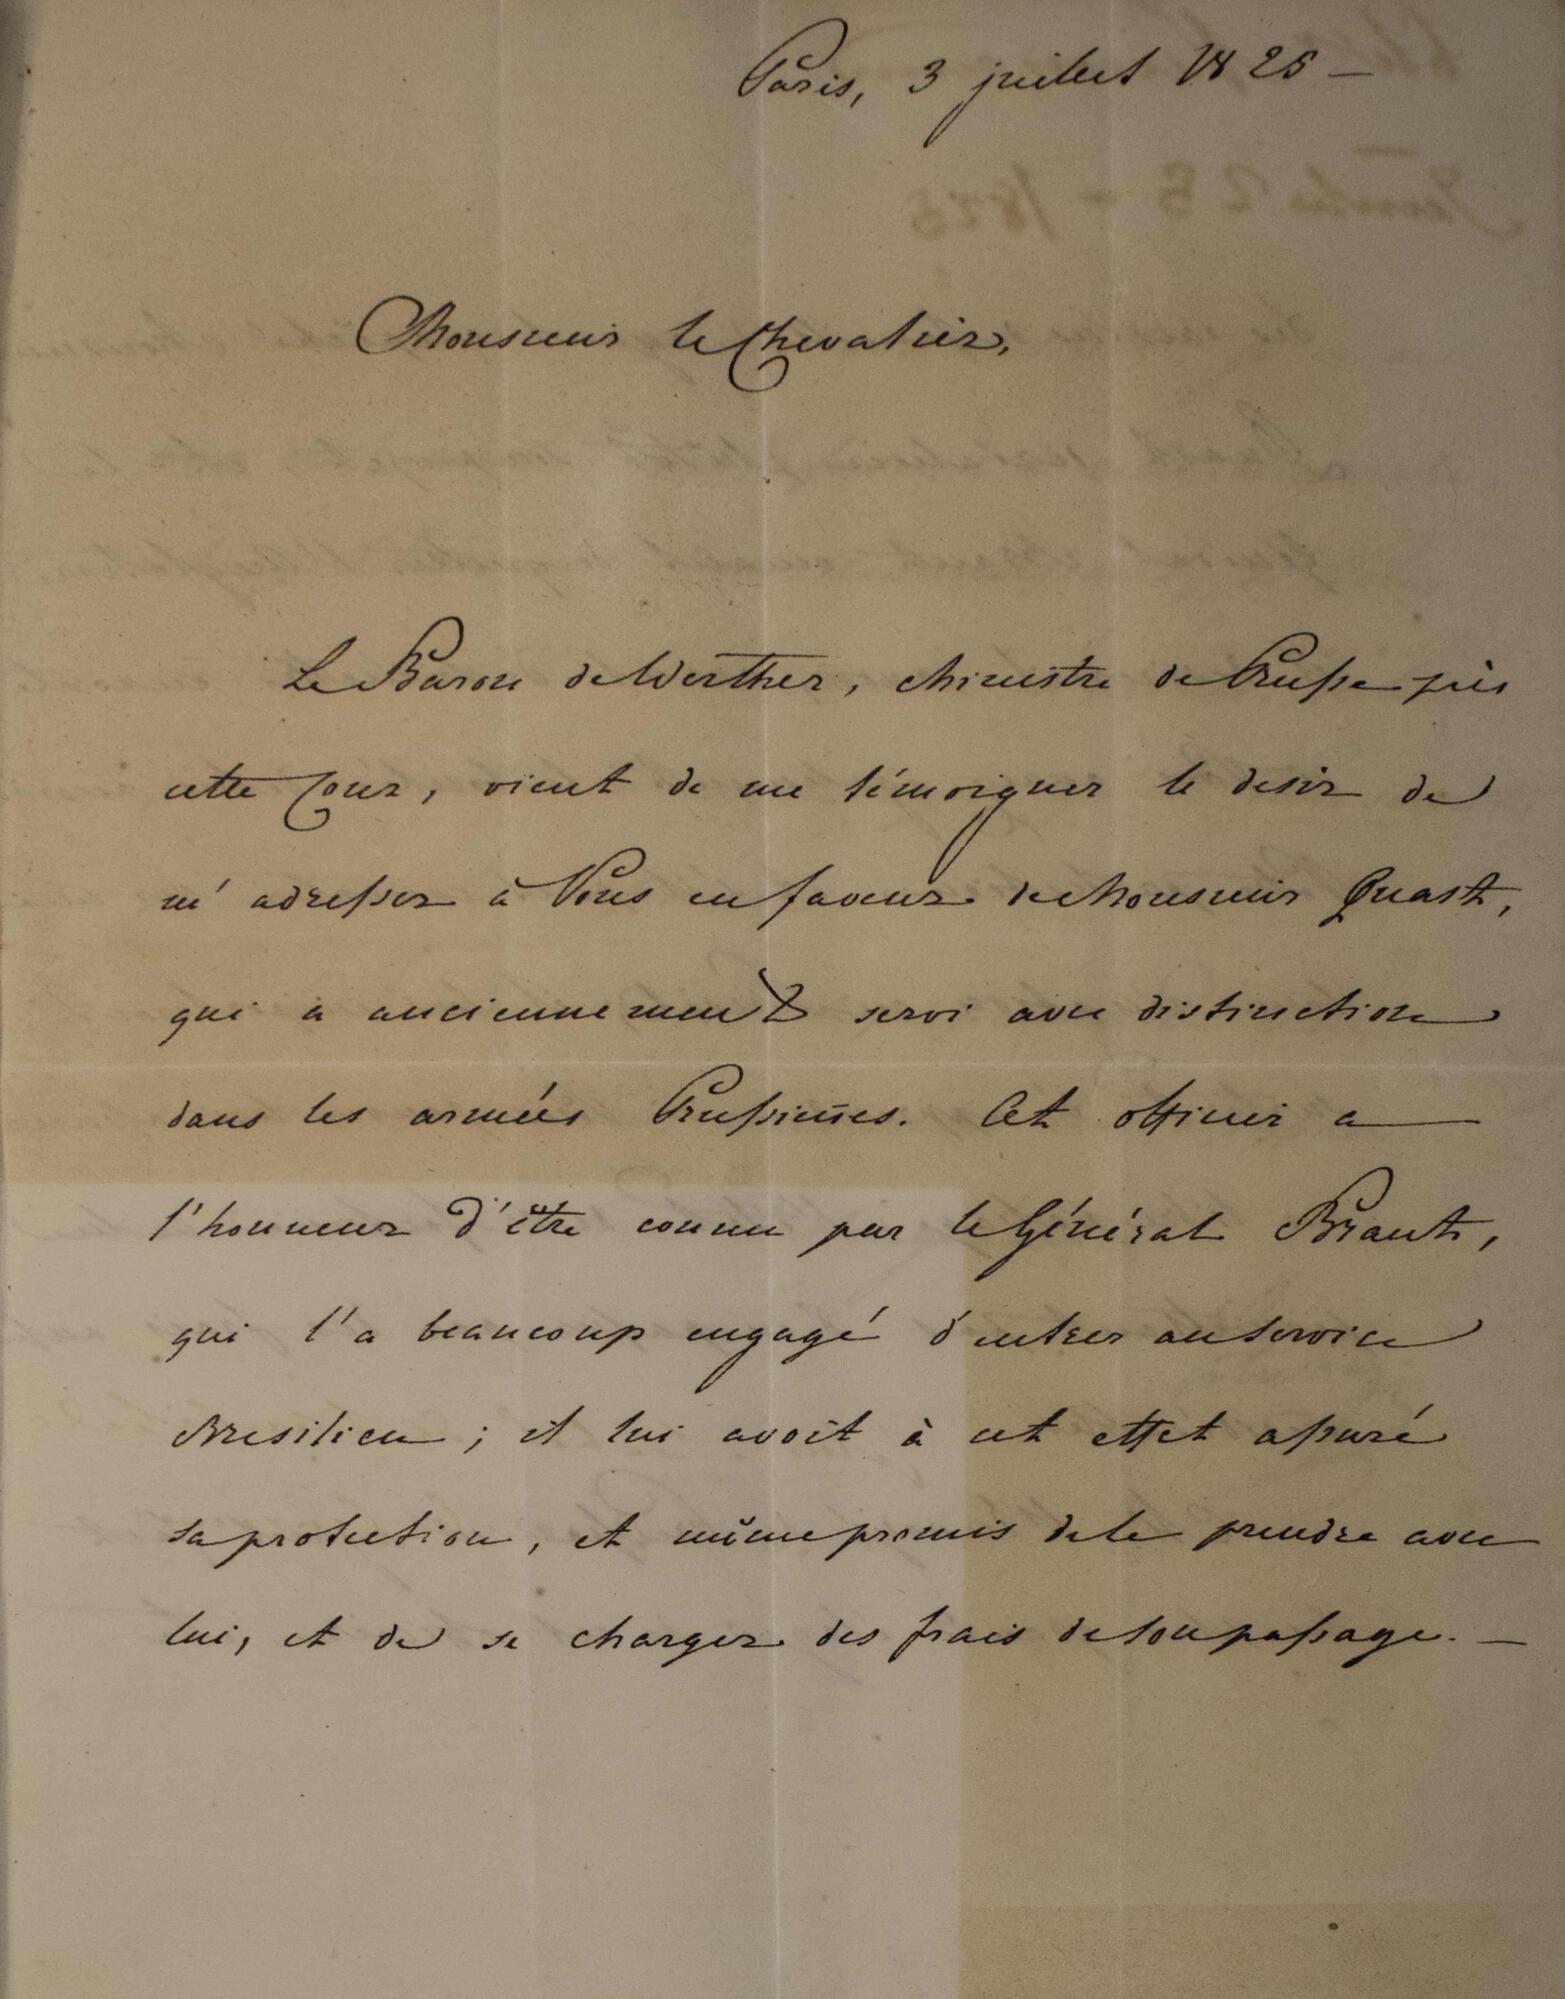 Paris, 3 juillet 1825 —
Monsieur le Chevalier,
Le Baron de Werther, Ministre de Prusse près
cette Cour, vient de me témoigner le desir de
m'adresser à Vous en faveur de Monsieur Quast,
qui a anciennement servi avec distinction
dans les armées Prussiennes. Cet officier a
l'honneur d'être connu par le Général Brant,
qui l'a beaucoup engagé d'entrer au service
Bresilien ; il lui avoit à cet effet assuré
sa protection, et même promis de le prendre avec
lui, et de se charger des frais de son passage. —